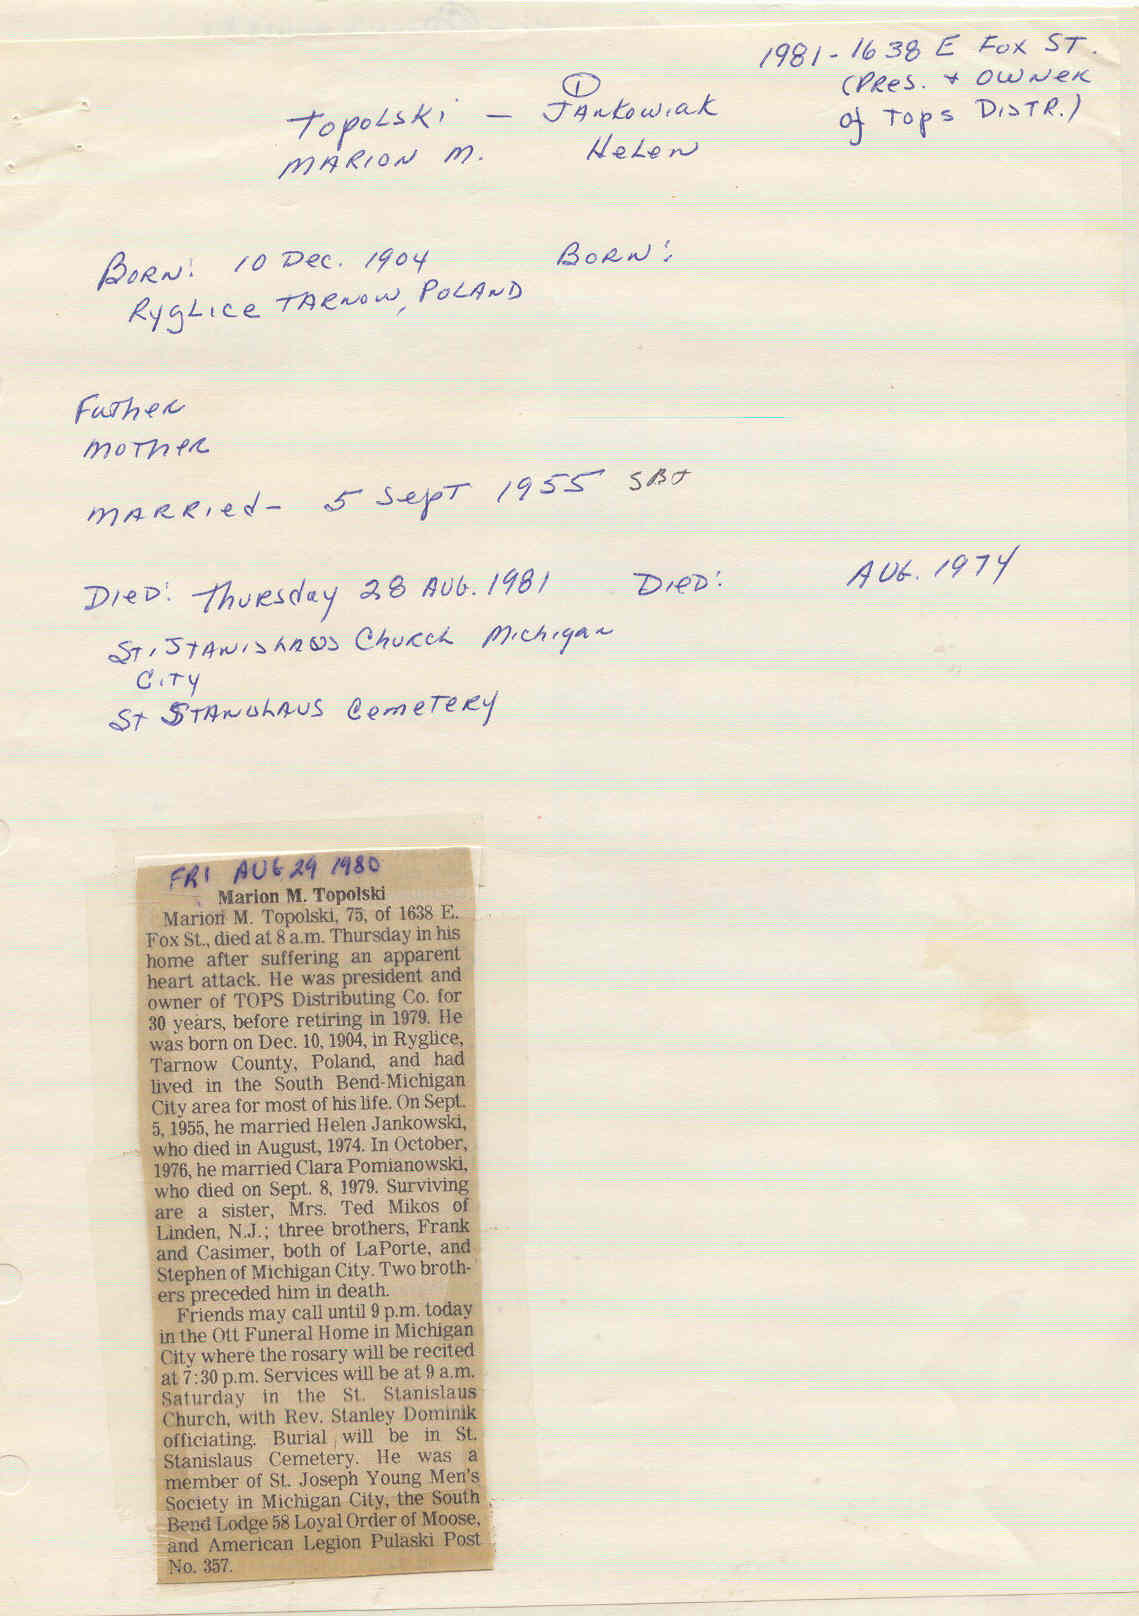 1981 - 1638 E Fox ST.
(Pres. + OWNER
of Tops DISTR.)
①
Topolski — Jankowiak
MARION M. Helen
BORN: 10 Dec. 1904 BORN:
Ryglice TARNOW, POLAND
Father
Mother
MARRIED - 5 Sept 1955 SBT
DIED: Thursday 28 AUG. 1981 DIED: AUG. 1974
St. STANISLAUS Church Michigan
City
St STANISLAUS Cemetery
FRI AUG 29 1980
Marion M. Topolski
Marion M. Topolski, 75, of 1638 E.
Fox St., died at 8 a.m. Thursday in his
home after suffering an apparent
heart attack. He was president and
owner of TOPS Distributing Co. for
30 years, before retiring in 1979. He
was born on Dec. 10, 1904, in Ryglice,
Tarnow County, Poland, and had
lived in the South Bend-Michigan
City area for most of his life. On Sept.
5, 1955, he married Helen Jankowski,
who died in August, 1974. In October,
1976, he married Clara Pomianowski,
who died on Sept. 8, 1979. Surviving
are a sister, Mrs. Ted Mikos of
Linden, N.J.; three brothers, Frank
and Casimer, both of LaPorte, and
Stephen of Michigan City. Two broth-
ers preceded him in death.
Friends may call until 9 p.m. today
in the Ott Funeral Home in Michigan
City where the rosary will be recited
at 7:30 p.m. Services will be at 9 a.m.
Saturday in the St. Stanislaus
Church, with Rev. Stanley Dominik
officiating. Burial will be in St.
Stanislaus Cemetery. He was a
member of St. Joseph Young Men's
Society in Michigan City, the South
Bend Lodge 58 Loyal Order of Moose,
and American Legion Pulaski Post
No. 357.